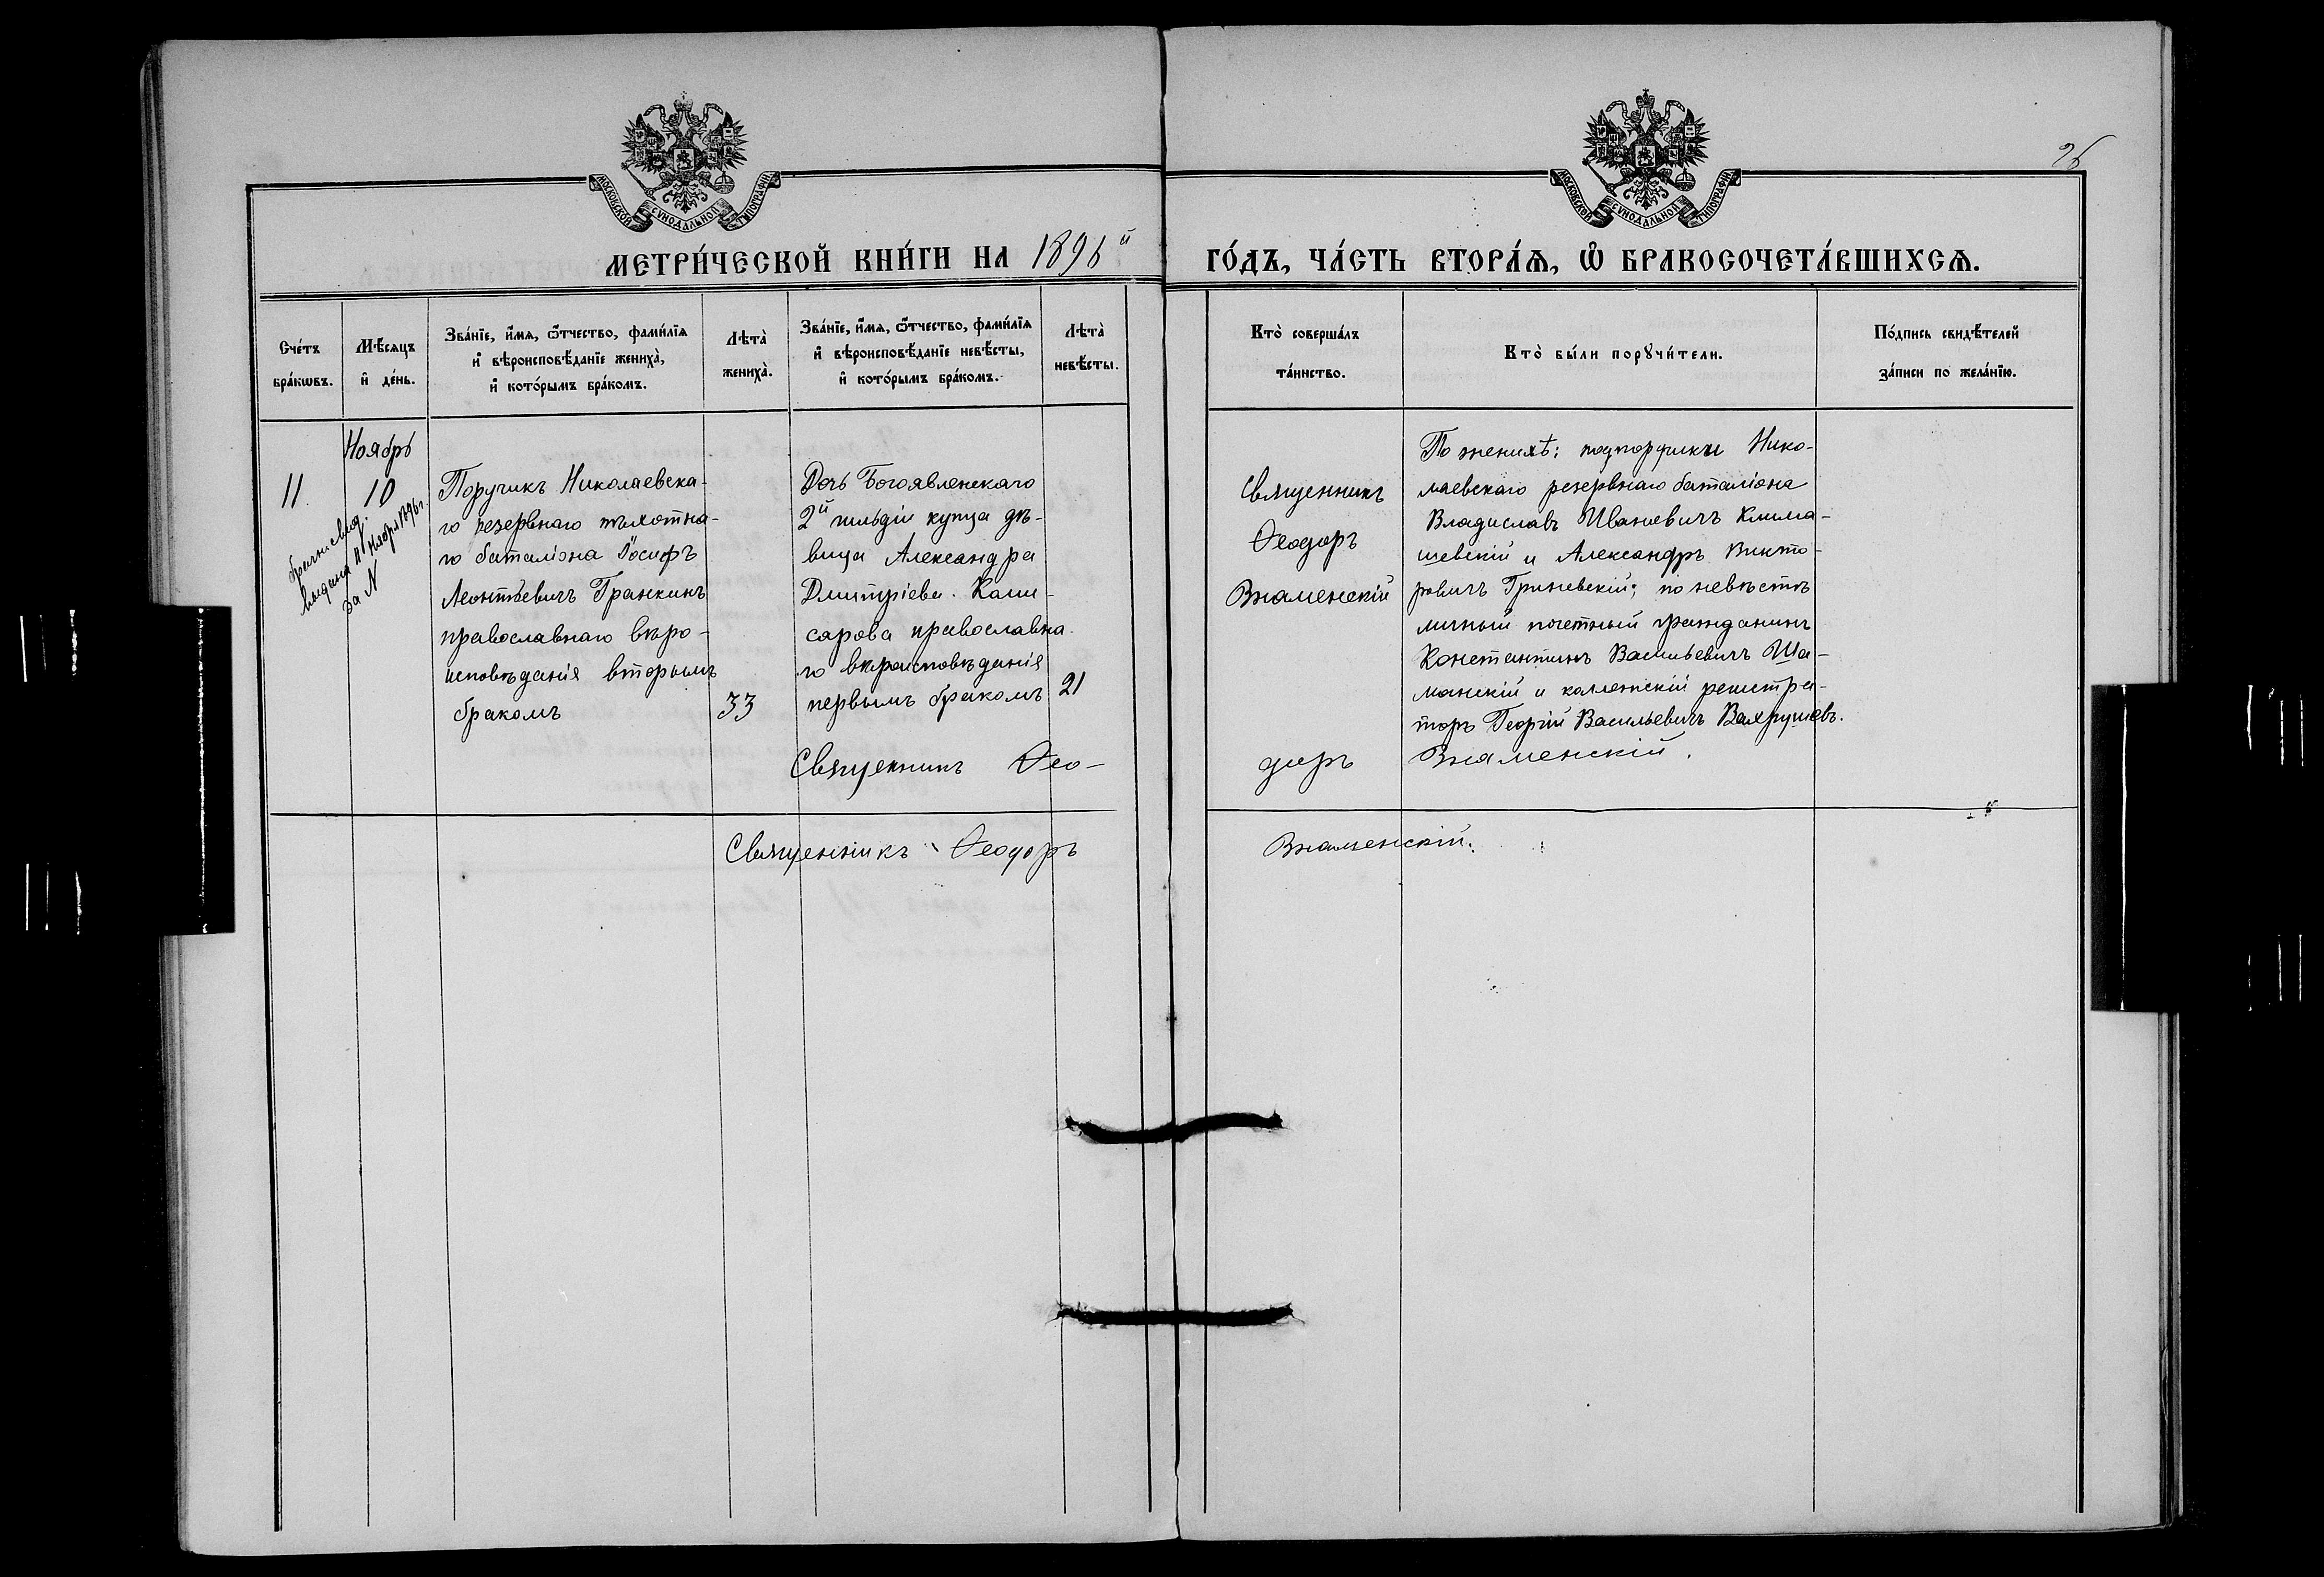 26
МОСКОВСКОЙ СѴНОДАЛЬНОЙ ТИПОГРАФІИ
МОСКОВСКОЙ СѴНОДАЛЬНОЙ ТИПОГРАФІИ
МЕТРИ́ЧЕСКОЙ КНИ́ГИ НА 1896й ГО́ДЪ, ЧА́СТЬ ВТОРА́Ѧ, Ѡ БРАКОСОЧЕТА́ВШИХСѦ.
Сче́тъ
бра́кѡвъ.
Мѣ́сяцъ
и де́нь.
Зва́нїе, и́мѧ, ѻ́тчество, фами́лїѧ
и вѣроисповѣ́данїе жениха̀,
и кото́рымъ бра́комъ.
Лѣта̀
жениха̀.
Зва́нїе, и́мѧ, ѻ́тчество, фами́лїѧ
и вѣроисповѣ́данїе невѣ́сты,
и кото́рымъ бра́комъ.
Лѣта̀
невѣ́сты.
Кто̀ соверша́лъ
та́инство.
Кто̀ бы́ли порꙋчи́тели.
По́дпись свидѣ́телей
за́писи по жела́нїю.
11.
Ноябрь
10
выдана 11 Ноября 1896 г.
за N
Поручикъ Николаевска-
го резервнаго пѣхотна-
го баталіона Іосифъ
Леонтьевичъ Гранкинъ
православнаго вѣро-
исповѣданія вторымъ
бракомъ
33
Дочь Богоявленскаго
2й гильдіи купца дѣ-
вица Александра
Дмитріева Коми-
сарова православна-
го вѣроисповѣданія
первымъ бракомъ
21
Священникъ
Ѳеодоръ
Знаменскій
По женихѣ: подпоручики Нико-
лаевскаго резервнаго баталіона
Владиславъ Ивановичъ Клима-
шевскій и Александръ Викто-
ровичъ Гриневскій; по невѣстѣ
личный почетный гражданинъ
Константинъ Васильевичъ Ша-
манскій и коллежскій регистра-
торъ Георгій Васильевичъ Вахрушевъ.
Священникъ Ѳео- доръ Знаменскій.
Священникъ Ѳеодоръ Знаменскій.